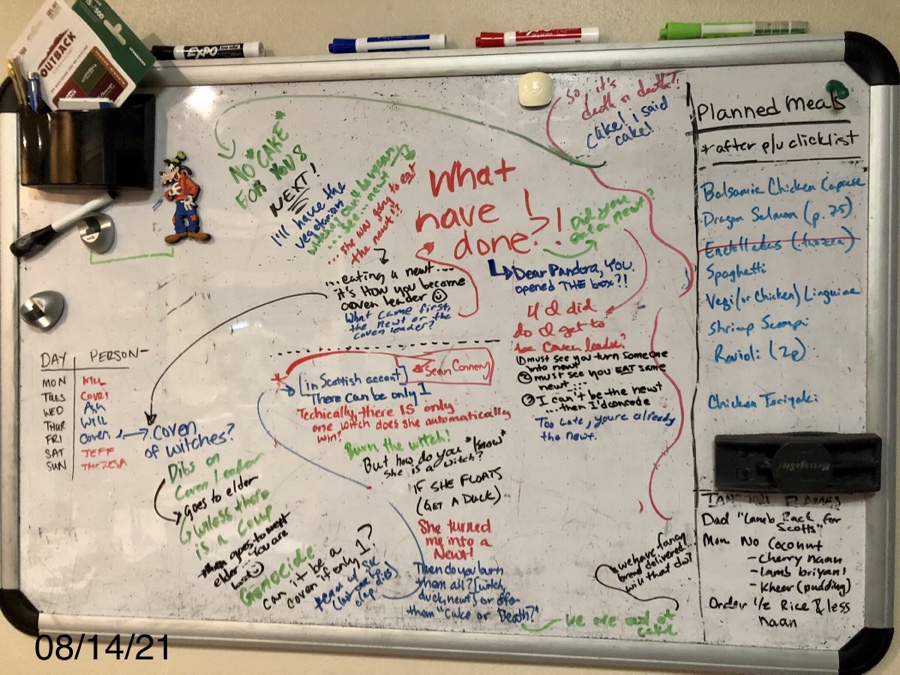 OUTBACK
EXPO
So, it's
death or death?!
Cake! I said
cake!
"NO CAKE"
FOR YOU 8
NEXT!
I'll have the
vegetarian
... she was going to eat
the newt!!
What
have !
done?!
Did you
eat a newt?
Dear Pandora, You
opened THE box?!
...eating a newt...
it's HOW you become
coven leader
What came first,
the newt or the
coven leader?
If I did
do I get to
be Coven leader?
① must see you turn someone
into newt
② must see you EAT same
newt ...
③ I can't be the newt
... then I'd concede
Too late, you're already
the newt.
Sean Connery
[in Scottish accent]
There can be only 1
Techically there IS only
one witch does she automatically
win?
Burn the witch!
But how do you *know*
she is a witch?
IF SHE FLOATS
(GET A DUCK)
She turned
me into a
Newt!
Then do you burn
them all? [witch,
duck, newt] or offer
them "Cake or Death?"
we are out of
cake
we have fancy
bread delivered
will that do?
DAY PERSON-
MON WILL
TUES COURT
WED Ash
THUR Will
FRI Coven
SAT JEFF
SUN THERESA
Coven
of witches?
Dibs on
Coven Leader
goes to elder
unless there
is a coup
Genocide
can it be a
coven if only 1?
Planned Meals
* after p/u clicklist
Balsamic Chicken Caprese
Dragon Salmon (p. 25)
Enchiladas (frozen)
Spaghetti
Vegi (or Chicken) Linguine
Shrimp Scampi
Ravioli (20)
Chicken Teriyaki
Dad "Lamb Rack for
Scotts"
Mom No Coconut
- cherry naan
- lamb briyani
- kheer (pudding)
Order 1/2 Rice & less
naan
08/14/21